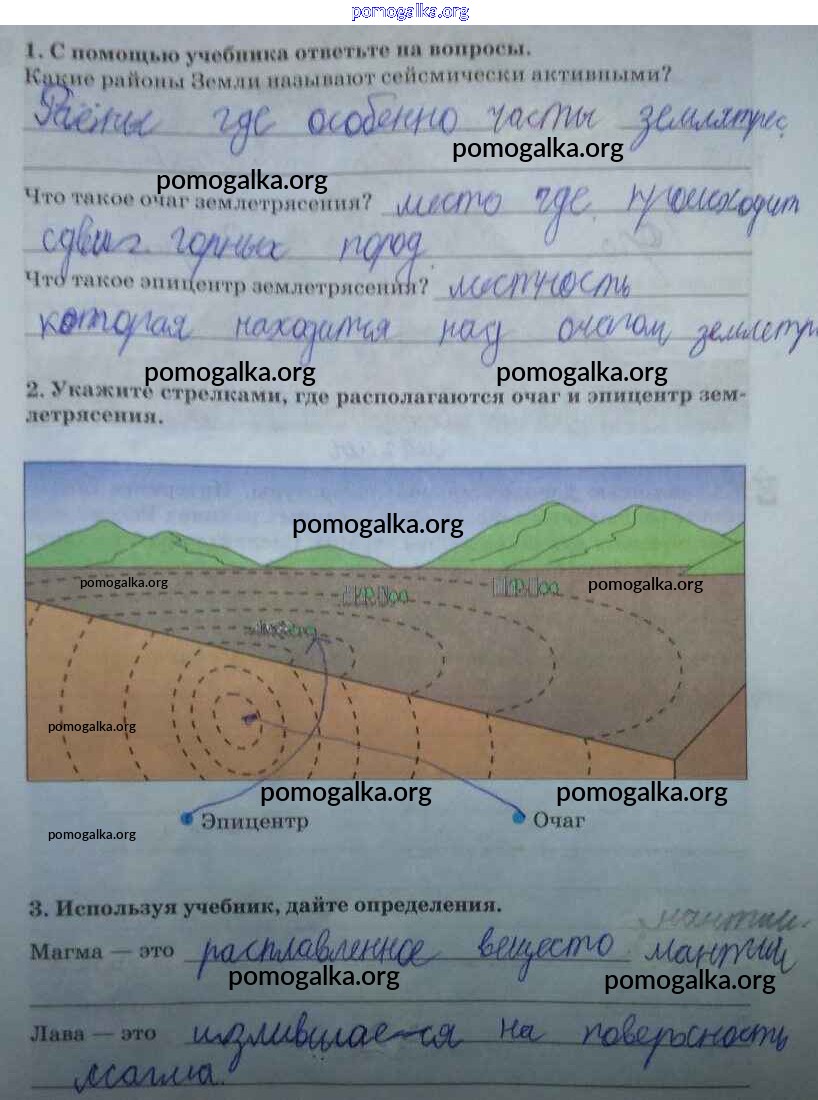 pomogalka.org
1. С помощью учебника ответьте на вопросы.
Какие районы Земли называют сейсмически активными?
где особенно часты землятрес
pomogalka.org
pomogalka.org
Что такое очаг землетрясения? место где происходит
сдвиг горных пород
Что такое эпицентр землетрясения? местность
которая находится над очагом землетр
pomogalka.org pomogalka.org
2. Укажите стрелками, где располагаются очаг и эпицентр зем-
летрясения.
pomogalka.org
pomogalka.org pomogalka.org
pomogalka.org
pomogalka.org pomogalka.org
Эпицентр Очаг
pomogalka.org
3. Используя учебник, дайте определения.
мантии
Магма — это расплавленное вещесто мантии
pomogalka.org pomogalka.org
Лава — это излившаеся на поверсность
магма.